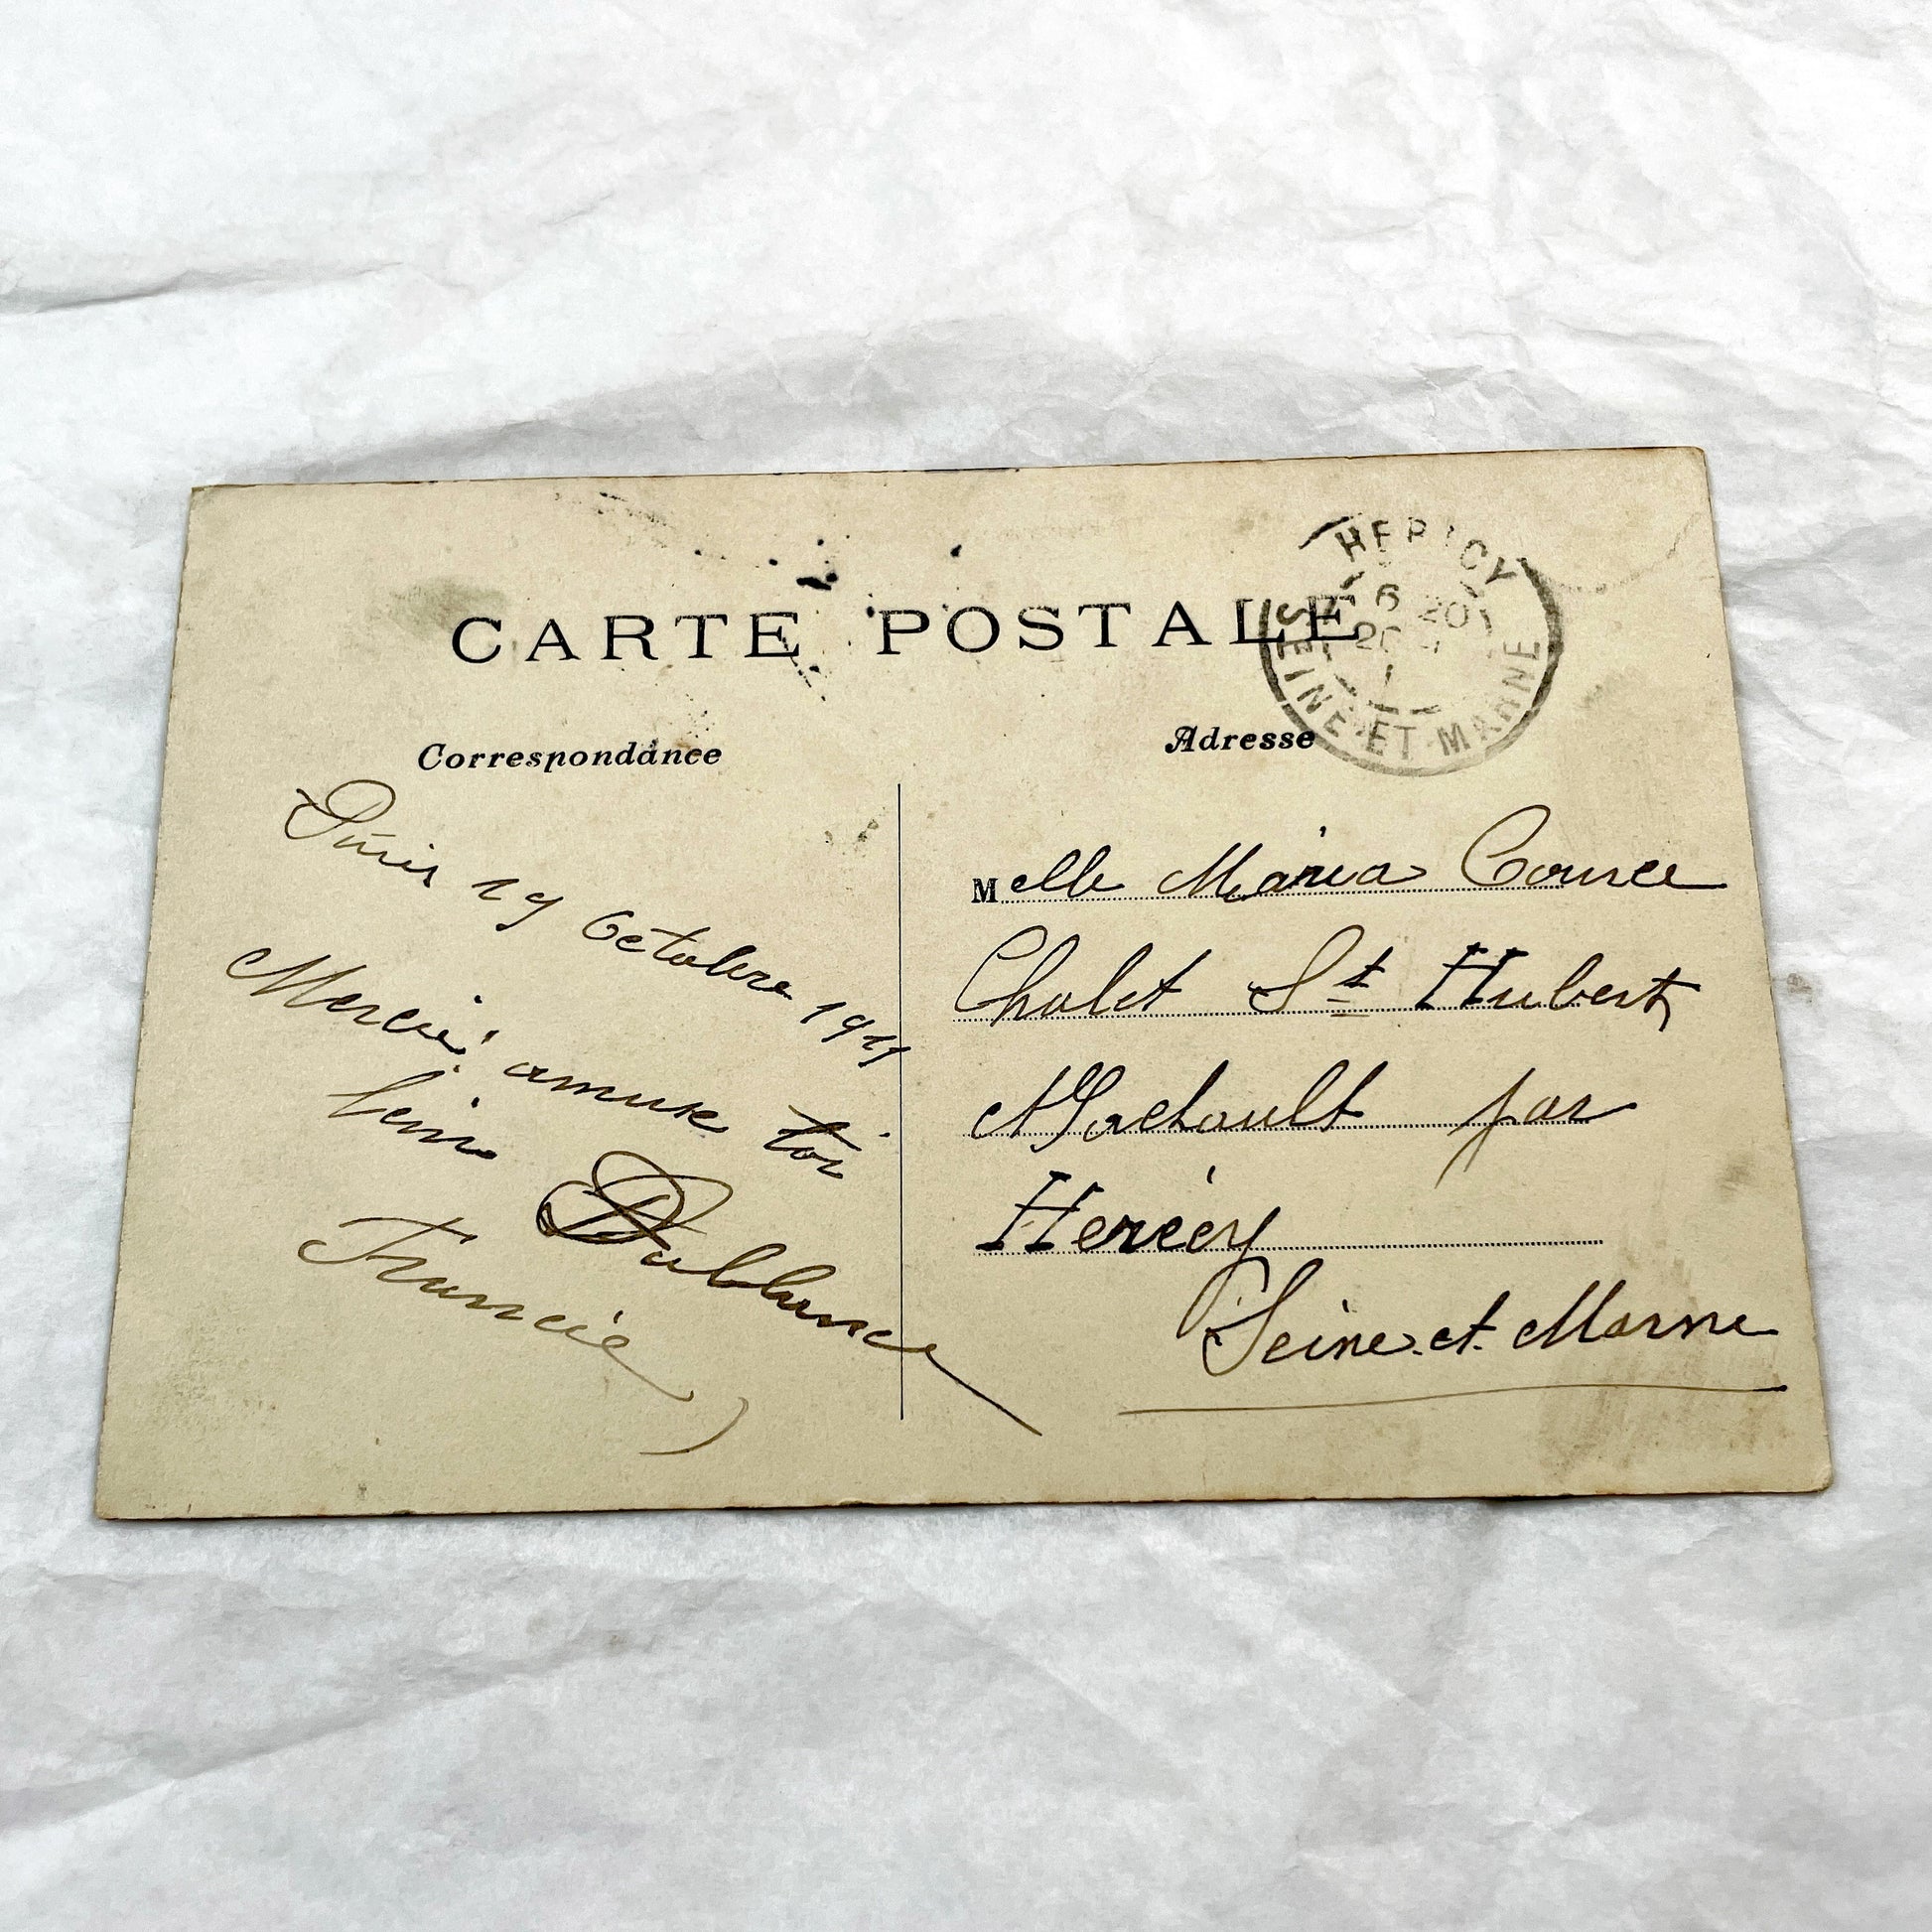 CARTE POSTALE
HERICY
6 20
20
SEINE-ET-MARNE
Correspondance
Adresse
Paris 19 Octobre 1911
Merci, amuse toi
bien
Dablance
Francie
Melle Maria Source
Chalet St Hubert
Machault par
Hericy
Seine-et-Marne